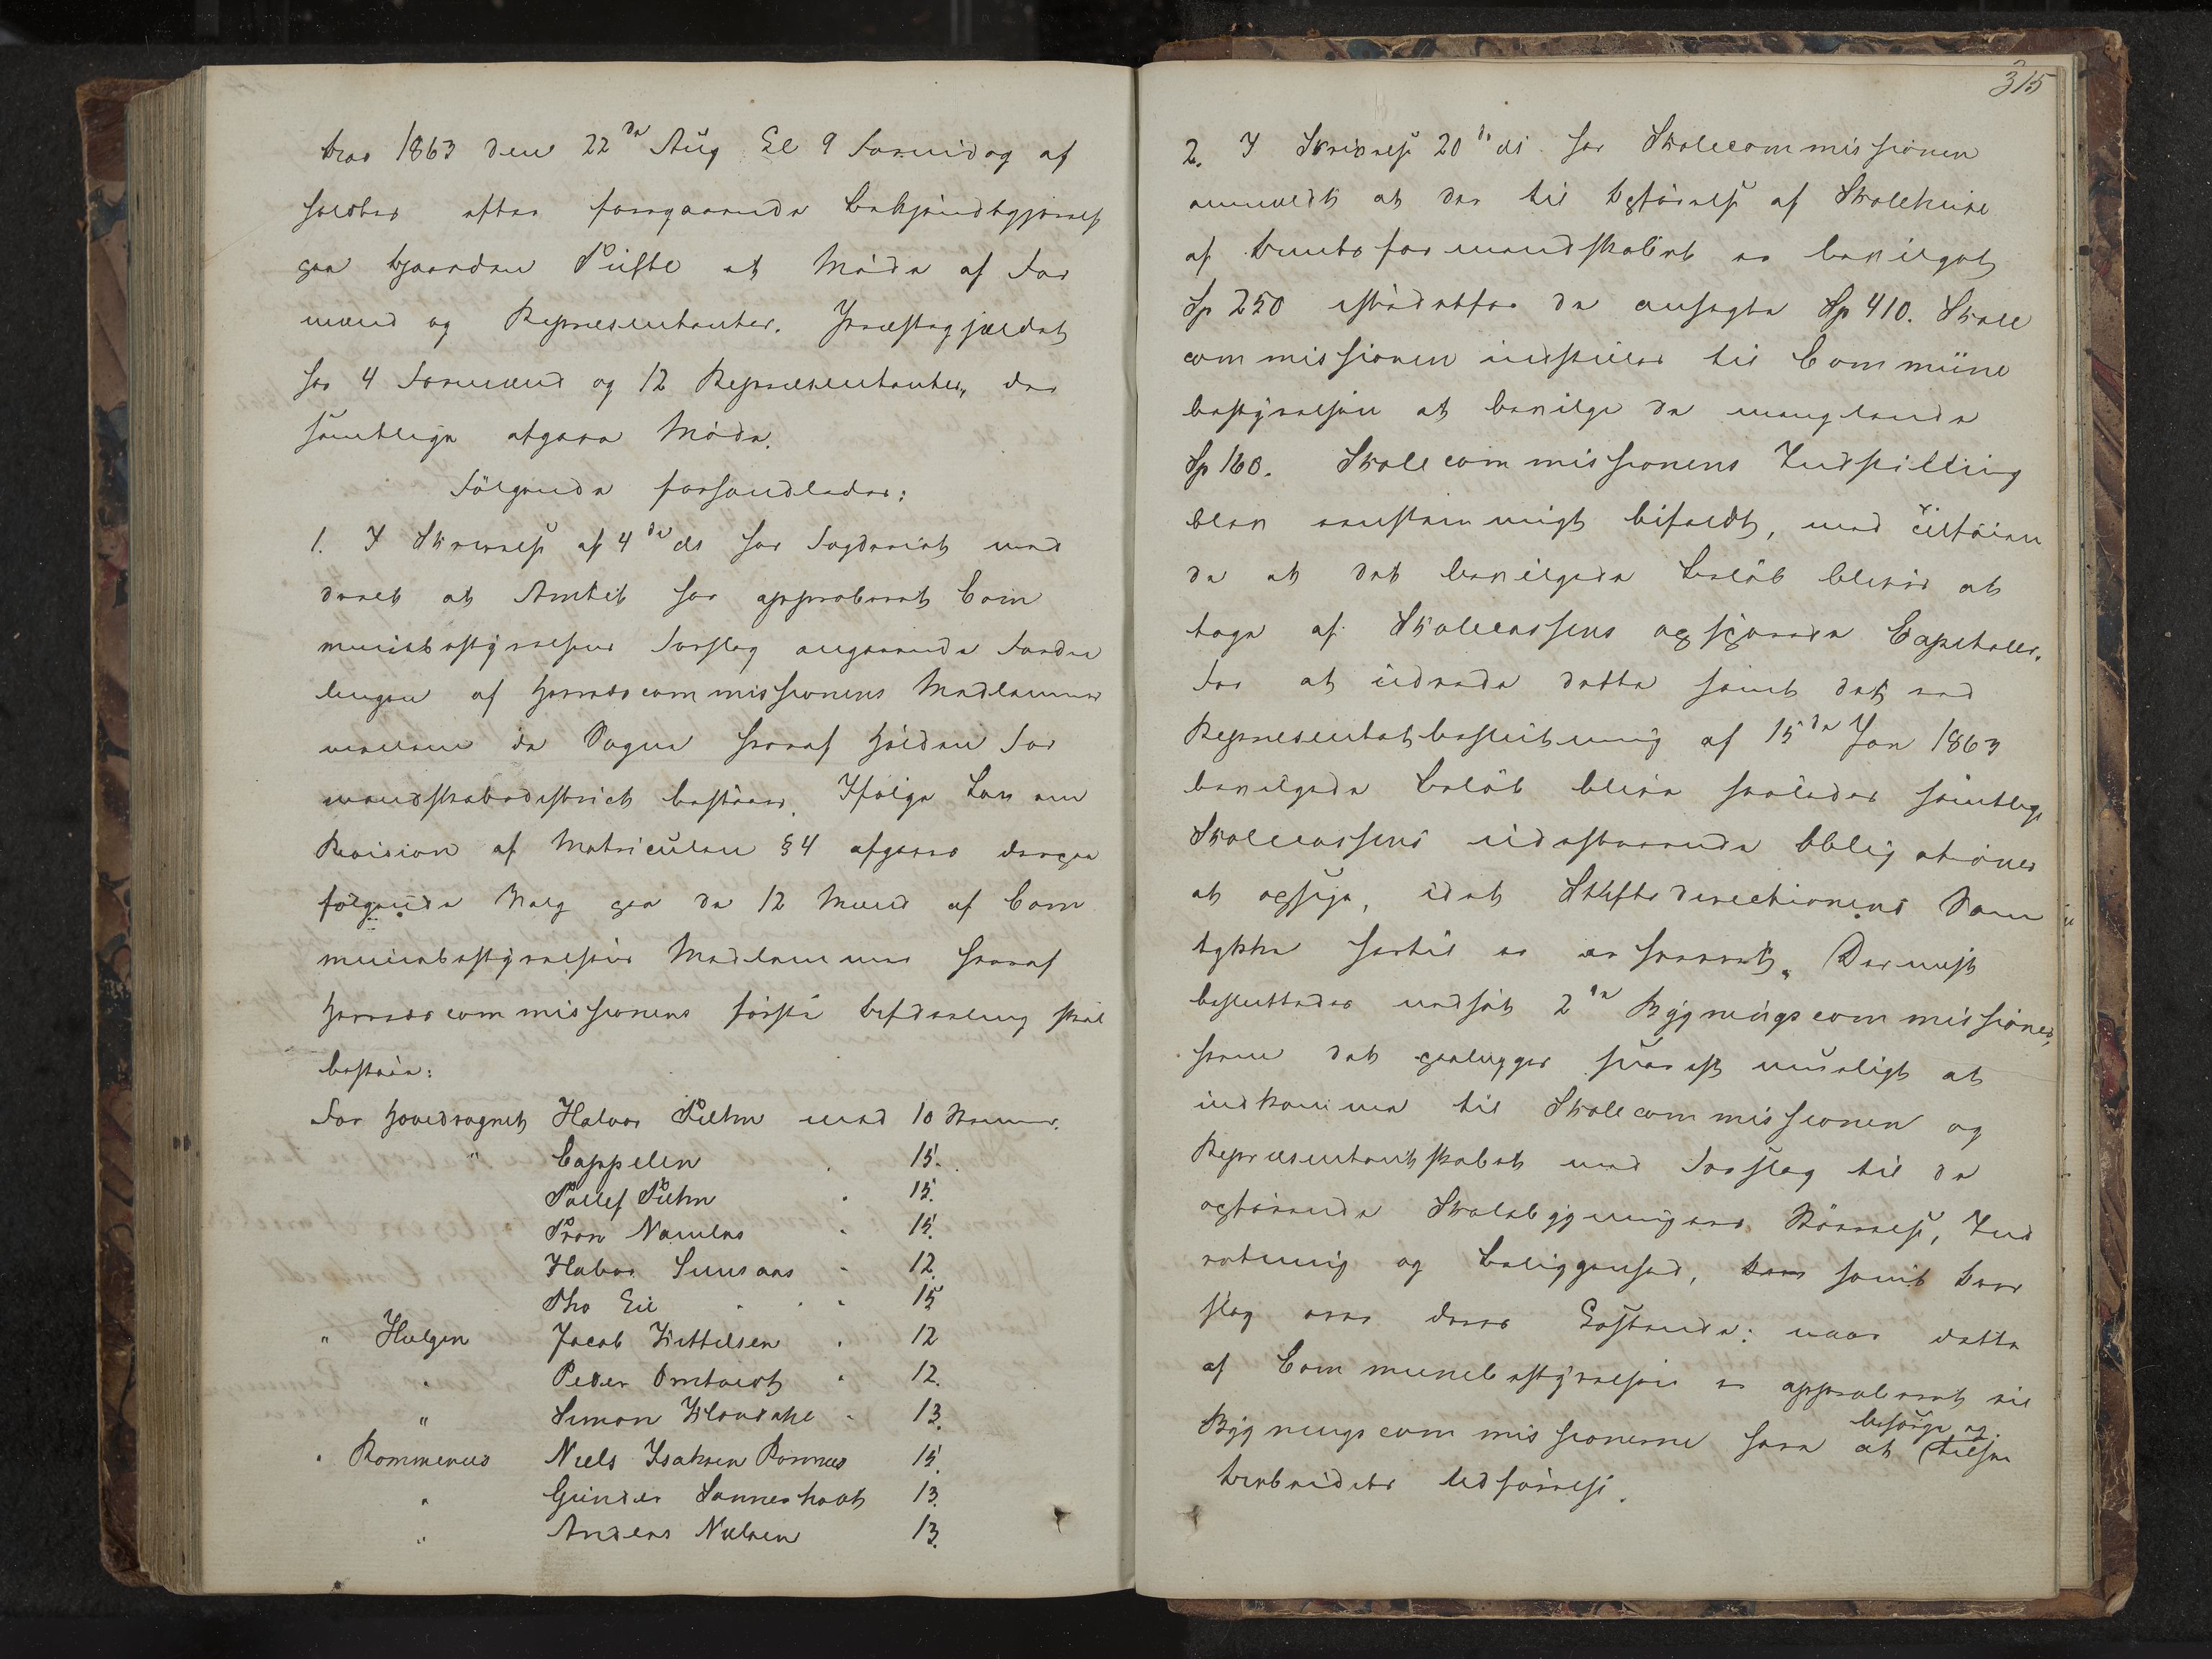 Aar 1863 den 22de Aug Kl 9 Formidag af
holdtes efter foregaaende Bekjendtgjørelse
paa Gaarden Tufte et Møde af For
mænd og Repræsentanter. Præstegjeldet
har 4 Formænd og 12 Repræsentanter, der
samtlige afgave Møde.
Følgende forhandledes:
1. I Skrivelse af 4de ds har Fogderiet med
deelt at Amtet har approberet Com
munebestyrelsens Forslag angaaende Forde
lingen af Herredscommissionens Medlemmer
mellem de Sogne hvoraf Hølden For
mandskabsdistrict bestaaer. Ifølge Lov om
Revision af Matriculen §4 afgaves derpaa
følgende Valg paa de 12 Mænd af Com
munebestyrelsens Medlemmer hvoraf
Herredscommissionens første Afdeeling skal
bestaae:
For Hovedsognet Halvor Tufte med 10 Stemmer.
" Cappelen . 15.
Tollef Tufte . 15.
Tron Namløs . 15.
Halvor Sunsaas . 12.
Tho Lie . . . 15
" Helgen Jacob Kittelsen . 12
. Peder Omtvedt . 12.
" Simon Hovdahl . 13.
" Romnenes Niels Isaksen Romnes 15.
" Gunder Sanneshaat 13.
" Anders Nielsen 13.
315
2. I Skrivelse 20de ds har Skolecommissionen
anmeldt at der til Opførelse af Skolehuse
af Amtsformandskabet er bevilget
Sp 250 istedetfor de ansøgte Sp 410. Skole
commissionen indstiller til Commune
bestyrelsen at bevilge de manglende
Sp 160. Skolecommissionens Indstilling
blev eenstemmigt bifaldt, med Tilføien
de at det bevilgede Beløb bliver at
tage af Skolecassens opsparede Capitaler.
For at udrede dette samt det ved
Repræsentatbeslutning af 15de Jan 1863
bevilgede Beløb blive saaledes samtlige
Skolecassens udestaaende Obligationer
at opsige, idet Stiftsdirectionens Sam
tykke hertil er erhvervet. Dernæst
besluttedes nedsat 2de Bygningscommissioner,
hvem det paaligger snarest mueligt at
indkomme til Skolecommissionen og
Repræsentantskabet med Forslag til de
opførende Skolebygningers Størrelse, Ind
retning og Beliggenhed, samt Over
slag over deres Kostende: naar dette
af Communebestyrelsen er approberet vil
Bygningscommissionerne have at besørge og tilsee
Arbeidets Udførelse.